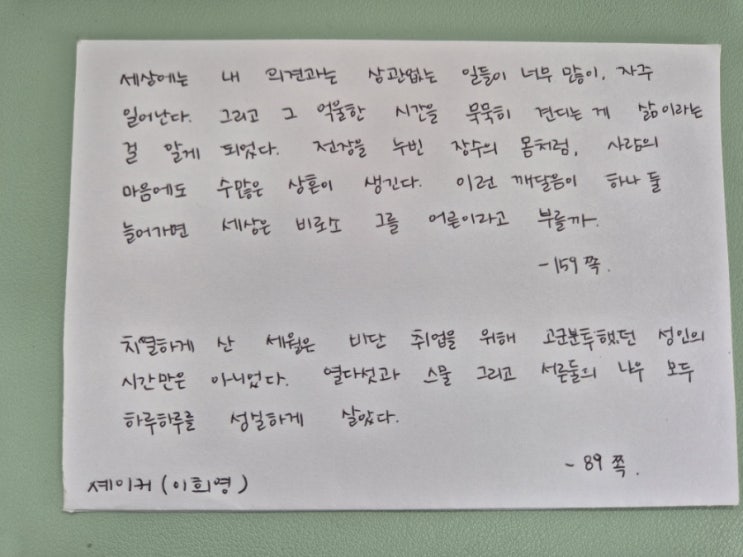 세상에는 내 의견과는 상관없는 일들이 너무 많이, 자주
일어난다. 그리고 그 억울한 시간을 묵묵히 견디는 게 삶이라는
걸 알게 되었다. 전장을 누빈 장수의 몸처럼, 사람의
마음에도 수많은 상흔이 생긴다. 이런 깨달음이 하나 둘
늘어가면 세상은 비로소 그를 어른이라고 부를까.
- 159 쪽.
치열하게 산 세월은 비단 취업을 위해 고군분투했던 성인의
시간만은 아니었다. 열다섯과 스물 그리고 서른둘의 나우 모두
하루하루를 성실하게 살았다.
- 89 쪽.
셰이커 (이희영)